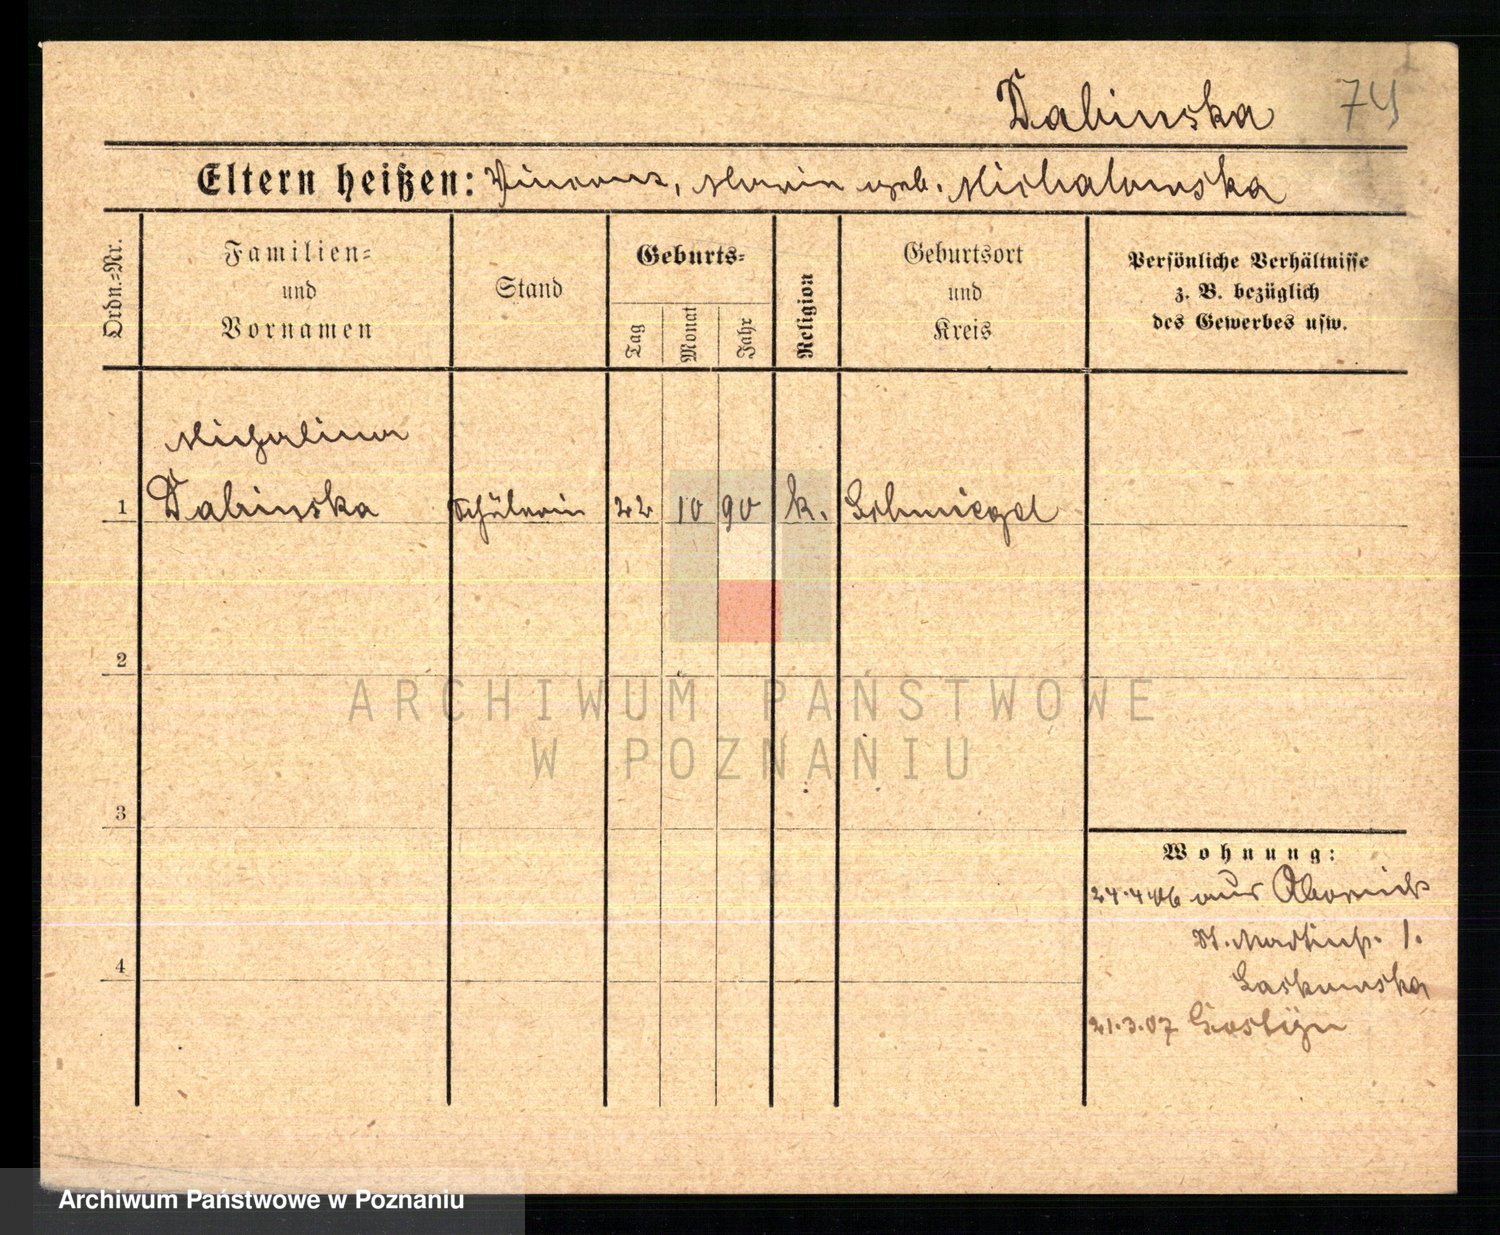 Dabinska 74
Eltern heißen: Vincenz, Maria geb. Michalowska
Ordn.=Nr.
Familien=
und
Vornamen
Stand
Geburts=
Tag
Monat
Jahr
Religion
Geburtsort
und
Kreis
Persönliche Verhältnisse
z. B. bezüglich
des Gewerbes usw.
Michalina
1 Dabinska Schülerin 22 10 90 k. Schmiegel
2
ARCHIWUM PAŃSTWOWE
W POZNANIU
3
Wohnung:
24.4.06 aus Obornick
St. Martinstr. 1.
4
Laskowska
21.3.07 Gostyn
Archiwum Państwowe w Poznaniu